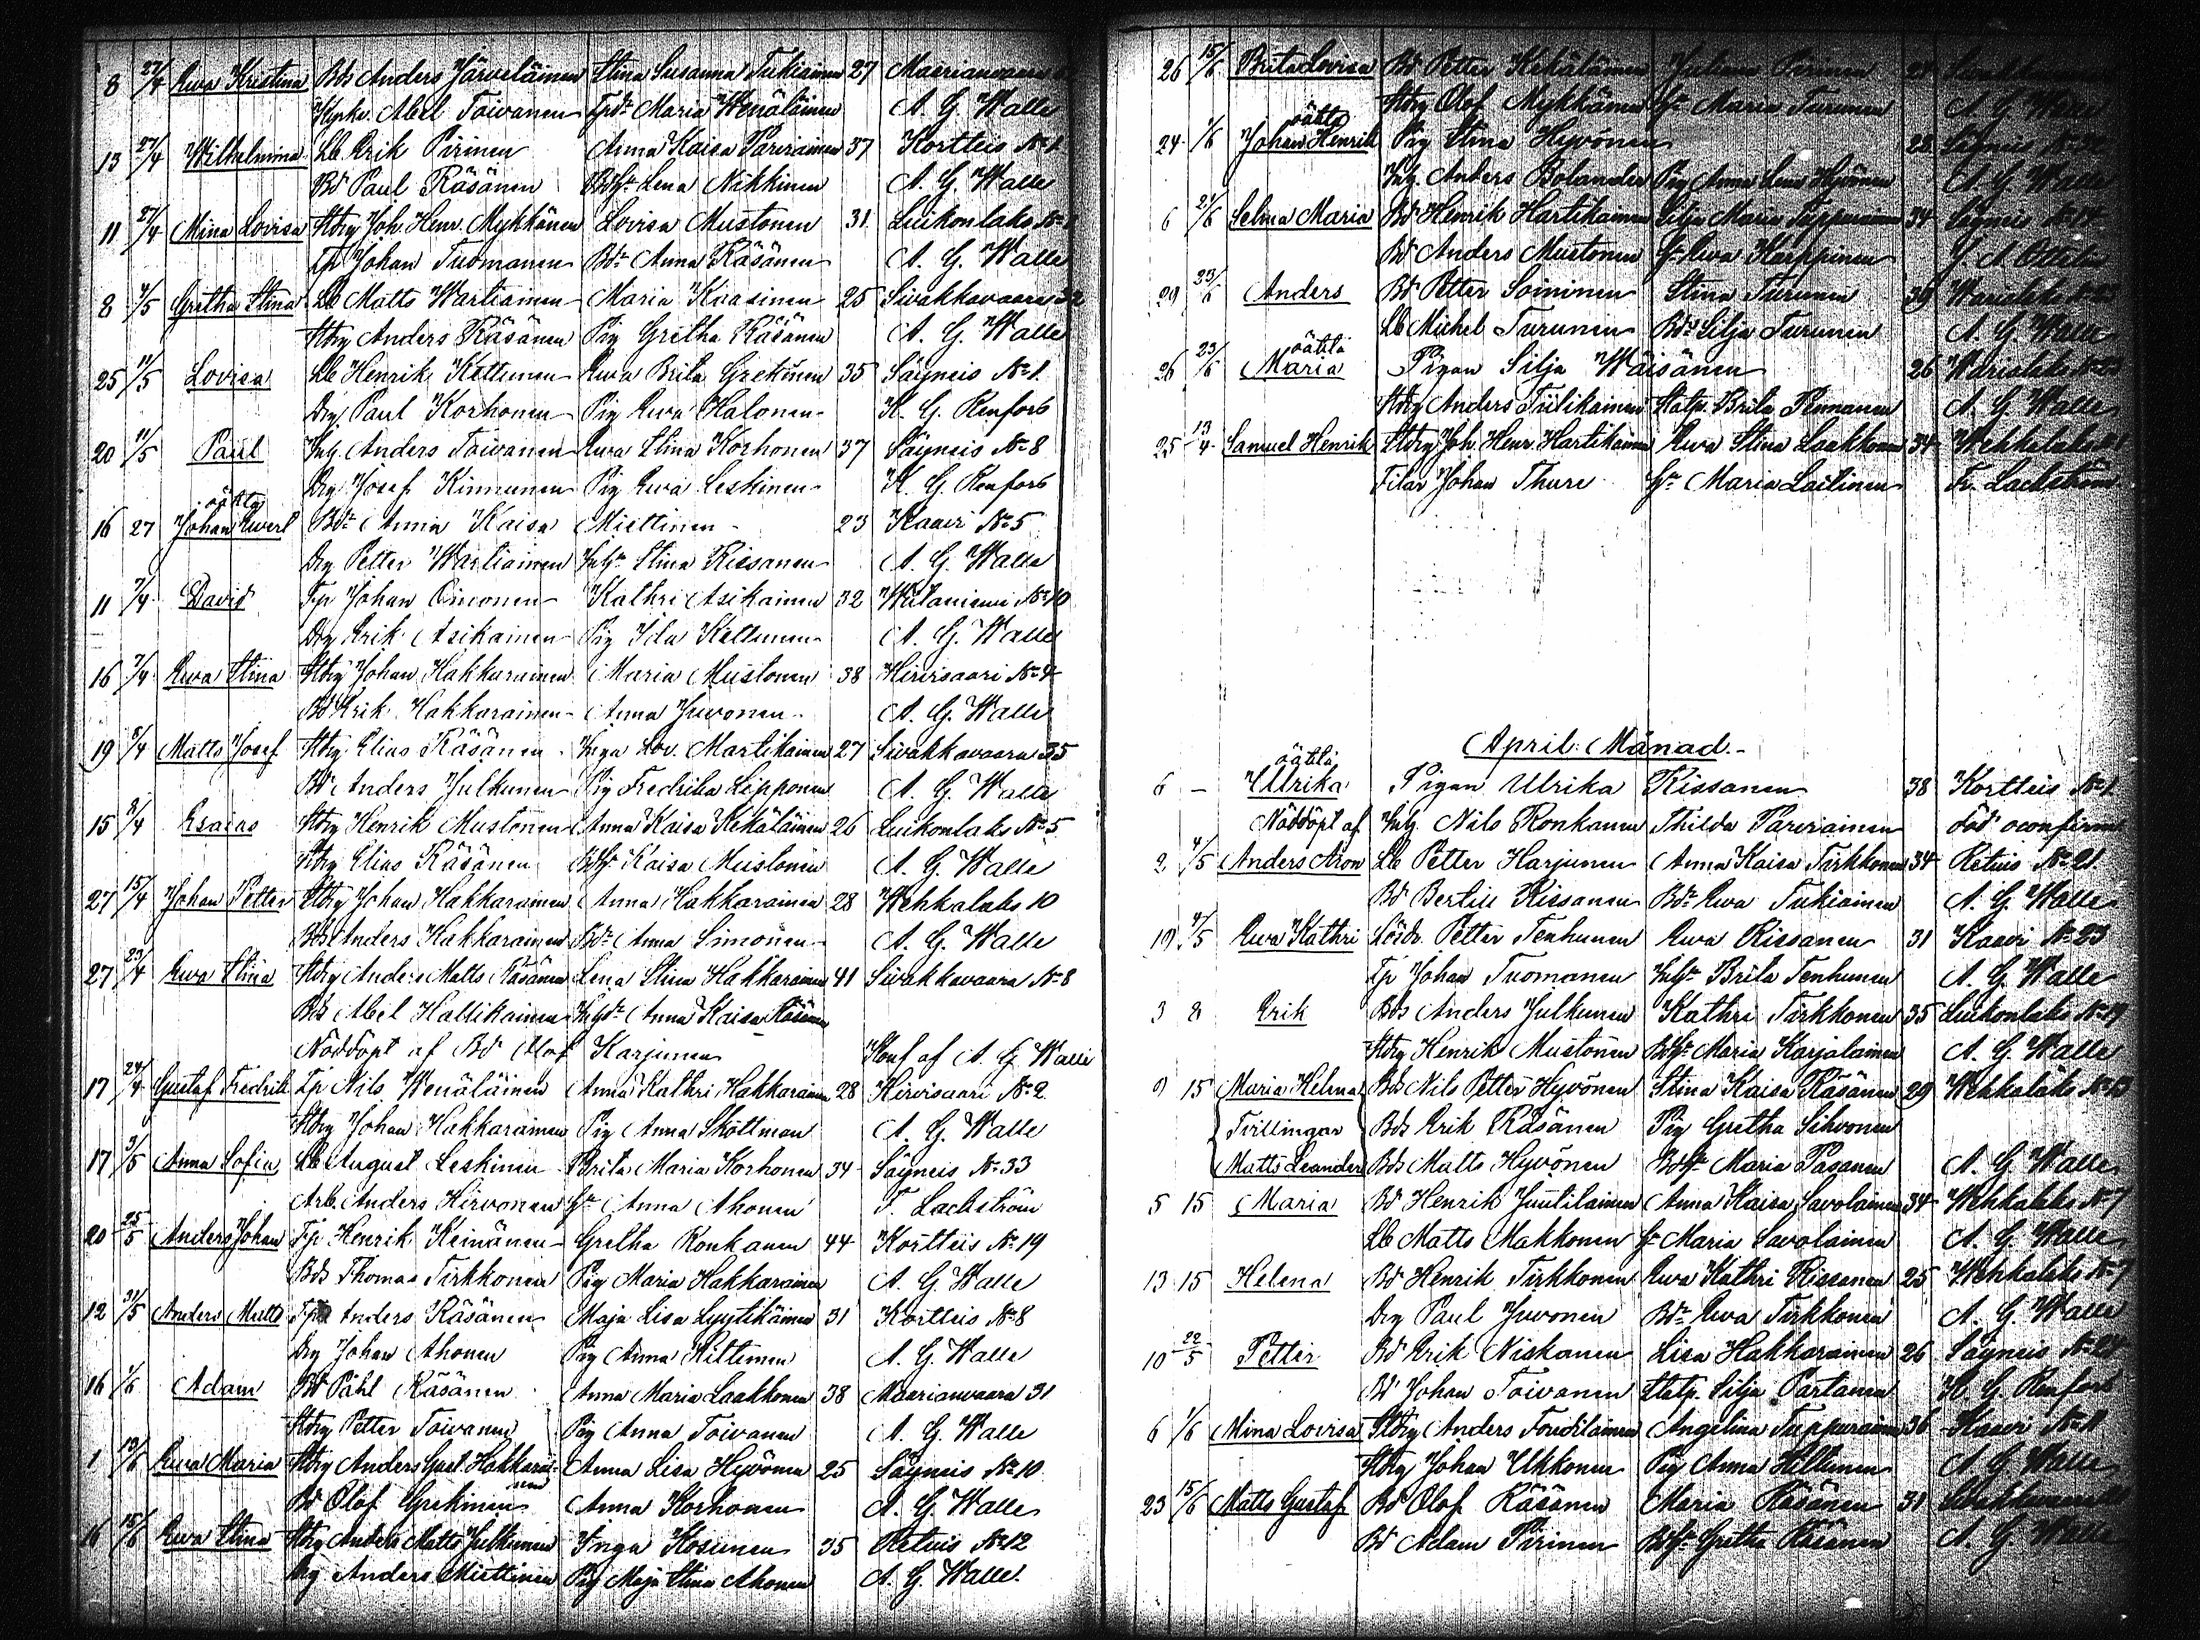 8 27/4 Ewa Kristina Bds Anders Järveläinen Stina Susanna Tukiainen 27 Maarianvaara
Abel Toivanen Maria Wenäläinen A. G. Walle
13 27/4 Wilhelmina Lb Erik Pirinen Anna Kaisa Parviainen 37 Kortteis No 1
Bd Paul Räsänen Bdhu Lena Nikkinen A. G. Walle
11 27/4 Mina Lovisa Stdrg Joh. Henr. Mykkänen Lovisa Mustonen 31 Luikonlaks No
Tp Johan Tuomanen Bdr Anna Räsänen A. G. Walle
8 /5 Gretha Stina Lb Matts Wartiainen Maria Kaasinen 25 Sivakkavaara 32
Stdrg Anders Räsänen Pig Gretha Räsänen A. G. Walle
25 11/5 Lovisa Lb Henrik Kettunen Ewa Brita Grekinen 35 Säyneis No 1.
Drg Paul Korhonen Pig Ewa Halonen K. G. Renfors
20 11/5 Paul Inh. Anders Toivanen Ewa Stina Korhonen 37 Säyneis No 8
Drg Josef Kinnunen Pig Ewa Leskinen K. G. Renfors
oäkta
16 27 Johan Ewert Bdr Anna Kaisa Miettinen 23 Kaavi No 5
Drg Petter Wartiainen Inhu Stina Rissanen A. G. Walle
11 7/4 David Tp Johan Simonen Kathri Asikainen 32 Wiitaniemi No 10
Drg Erik Asikainen Pig Ida Kettunen A. G. Walle
16 7/4 Ewa Stina Stdrg Johan Hakkarainen Maria Mustonen 38 Hirvisaari No 4
Bd Erik Hakkarainen Anna Juvonen A. G. Walle
19 /4 Matts Josef Stdrg Elias Räsänen Inga Lov. Martikainen 27 Sivakkavaara 35
Bd Anders Julkunen Pig Fredrika Lipponen A. G. Walle
15 /4 Esaias Stdrg Henrik Mustonen Anna Kaisa Kekäläinen 26 Luikonlaks No 5
Stdrg Elias Räsänen Bdhu Kaisa Mustonen A. G. Walle
27 15/4 Johan Petter Stdrg Johan Hakkarainen Anna Hakkarainen 28 Wehkalaks 10
Bds Anders Hakkarainen Bdr Anna Simonen A. G. Walle
27 23/4 Ewa Stina Stdrg Anders Matts Räsänen Lena Stina Hakkarainen 41 Sivakkavaara No 8
Bds Abel Hallikainen Anna Kaisa Räsänen
Nöddöpt af Bd Olof Karjunen Konf af A. G. Walle
17 24/4 Gustaf Fredrik Tp Nils Wenäläinen Anna Kathri Hakkarainen 28 Hirvisaari No 2
Stdrg Johan Hakkarainen Pig Anna Skottman A. G. Walle
17 3/5 Anna Sofia Lb August Leskinen Brita Maria Korhonen 34 Säyneis No 33
Arb. Anders Hirvonen hu Anna Ahonen F. Lackström
20 25/5 Anders Johan Tp Henrik Keinänen Gretha Ronkanen 44 Kortteis No 19
Bds Thomas Tirkkonen Pig Maria Hakkarainen A. G. Walle
12 31/5 Anders Matts Tp Anders Räsänen Maja Lisa Lyytikäinen 31 Kortteis No 8
Drg Johan Ahonen Pig Anna Hiltunen A. G. Walle
16 1/6 Adam Bd Påhl Räsänen Anna Maria Laakkonen 38 Maarianvaara 31
Stdrg Petter Toivanen Pig Anna Toivanen A. G. Walle
1 13/6 Ewa Maria Stdrg Anders Gust. Hakkarai- Anna Lisa Hyvönen 25 Säyneis No 10
nen
Bd Olof Grekinen Anna Korhonen A. G. Walle
16 15/6 Ewa Stina Stdrg Anders Matts Julkunen Inga Kosunen 35 Retuis No 12
Drg Anders Miettinen Pig Maja Stina Ahonen A. G. Walle.
26 15/6 Brita Lovisa Bd Petter Kekäläinen Juliana Pirinen
Stdrg Olof Mykkänen hu Maria Turunen A. G. Walle
oäkta
24 1/6 Johan Henrik Pig Stina Hyvönen 22 Säyneis
Inh. Anders Bolander Pig Anna Lena Hyvönen A. G. Walle
6 21/6 Selma Maria Bd Henrik Hartikainen Silja Maria Tuppurainen 34 Säyneis
Bd Anders Mustonen hu Ewa Karppinen
29 23/6 Anders Bd Petter Soininen Stina Turunen 39
Lb Michel Turunen Bdr Silja Turunen A. G. Walle
oäkta
26 23/6 Maria Pigan Silja Wäisänen 26
Stdrg Anders Tiilikainen Statp. Brita Pennanen A. G. Walle
25 13/4 Samuel Henrik Stdrg Joh. Henr. Hartikainen Ewa Stina Laakkonen 34 Wehkalaks
Filar Johan Thure hu Maria Laitinen Fr. Lackström
April Månad.
oäkta
6 — Ulrika Pigan Ulrika Rissanen 38 Kortteis No 1
Nöddöpt af Inh. Nils Ronkanen Thilda Parviainen död oconfirm
2 4/5 Anders Aron Lb Petter Harjunen Anna Kaisa Tirkkonen 34 Retuis No 21
Bd Bertil Rissanen Bdr Ewa Tukiainen A. G. Walle
19 4/5 Ewa Kathri Petter Tenhunen Ewa Rissanen 31 Kaavi No 23
Tp Johan Tuomanen Inhu Brita Tenhunen A. G. Walle
3 8 Erik Bds Anders Julkunen Kathri Tirkkonen 35 Luikonlaks No 19
Stdrg Henrik Mustonen Bdhu Maria Karjalainen A. G. Walle
9 15 Maria Helena Bds Nils Petter Hyvönen Stina Kaisa Räsänen 29 Wehkalaks No
Tvillingar Bds Erik Räsänen Pig Gretha Sihvonen
Matts Leander Bds Matts Hyvönen Bdhu Maria Pasanen A. G. Walle
5 15 Maria Bd Henrik Juutilainen Anna Kaisa Savolainen 34 Wehkalaks No 7
Lb Matts Makkonen hu Maria Savolainen A. G. Walle
13 15 Helena Bd Henrik Tirkkonen Ewa Kathri Rissanen 25 Wehkalaks No 7
Drg Paul Juvonen Bdr Ewa Tirkkonen A. G. Walle
10 22/5 Petter Bd Erik Niskanen Lisa Hakkarainen 26 Säyneis No
Bd Johan Toivanen Statp. Silja Partanen K. G. Renfors
6 1/6 Mina Lovisa Stdrg Anders Tondilainen Angelina Tuppurainen 36 Kaavi No
Stdrg Johan Ukkonen Pig Anna Hiltunen A. G. Walle
23 15/6 Matts Gustaf Bd Olof Räsänen Maria Räsänen 31
Bd Adam Pirinen Bdhu Gretha Räsänen A. G. Walle